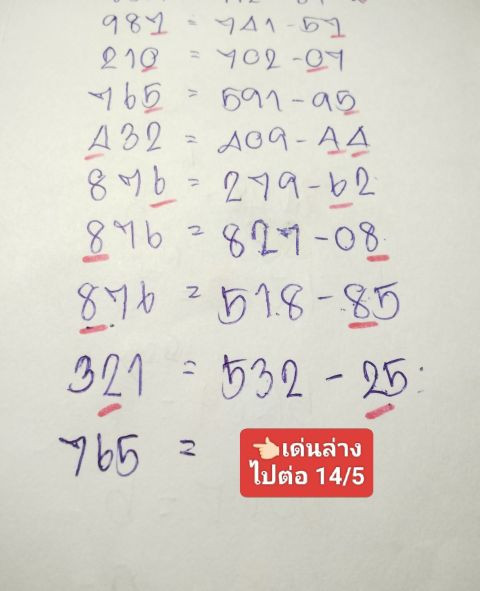 987 = 741-57
210 = 702-07
765 = 591-95
432 = 409-44
876 = 279-62
876 = 827-08
876 = 518-85
321 = 532-25
765 =
เด่นล่าง
ไปต่อ 14/5